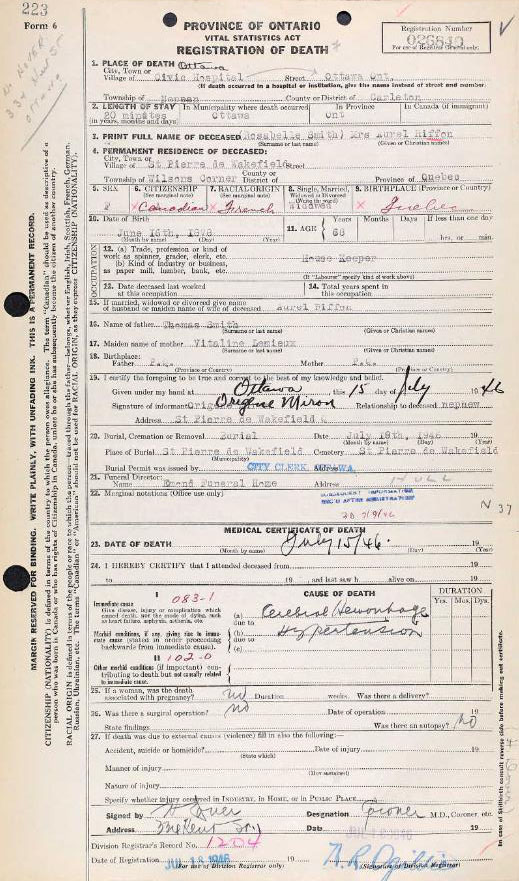 223
Form 6
PROVINCE OF ONTARIO
VITAL STATISTICS ACT
REGISTRATION OF DEATH
Registration Number
For use of Registrar General only.
1. PLACE OF DEATH Ottawa
City, Town or
Village of Civic Hospital Street Ottawa Ont.
(If death occurred in a hospital or institution, give the name instead of street and number)
Township of Nepean County or District of Carleton
2. LENGTH OF STAY In Municipality where death occurred In Province In Canada (if immigrant)
(in years, months and days) 20 minutes Ottawa Ont
3. PRINT FULL NAME OF DECEASED (Rosabelle Smith) Mrs Aurel Riffon
(Surname or last name) (Given or Christian names)
4. PERMANENT RESIDENCE OF DECEASED:
City, Town or
Village of St Pierre de Wakefield Street
Township of Wilsons Corner County or District of Province of Quebec
5. SEX 6. CITIZENSHIP 7. RACIAL ORIGIN 8. Single, Married, Widowed or Divorced 9. BIRTHPLACE (Province or Country)
(See marginal note) (See marginal note) (Write the word)
F Canadian French Widowed Quebec
10. Date of Birth
June 16th, 1878
(Month by name) (Day) (Year)
11. AGE Years Months Days If less than one day
68 hrs. or min.
OCCUPATION
12. (a) Trade, profession or kind of work as spinner, grader, clerk, etc. House Keeper
(b) Kind of industry or business, as paper mill, lumber, bank, etc.
If "Labourer" specify kind of work above
13. Date deceased last worked at this occupation
14. Total years spent in this occupation
15. If married, widowed or divorced give name of husband or maiden name of wife of deceased Aurel Riffon
16. Name of father Thomas Smith
(Surname or last name) (Given or Christian names)
17. Maiden name of mother Vitaline Lemieux
(Surname or last name) (Given or Christian names)
18. Birthplace:
Father P.Q. Mother P.Q.
(Province or Country) (Province or Country)
19. I certify the foregoing to be true and correct to the best of my knowledge and belief.
Given under my hand at Ottawa this 15 day of July 1946
Signature of informant Origène Miron Relationship to deceased nephew
Address St Pierre de Wakefield
20. Burial, Cremation or Removal Burial Date July 18th, 1946
(Month by name) (Day) (Year)
Place of Burial St Pierre de Wakefield Cemetery St Pierre de Wakefield
(Municipality)
Burial Permit was issued by CITY CLERK, OTTAWA. Address
21. Funeral Director:
Name Emond Funeral Home Address HULL
22. Marginal notations (Office use only)
N 37
MEDICAL CERTIFICATE OF DEATH
23. DATE OF DEATH July 15/46. 19
(Month by name) (Day) (Year)
24. I HEREBY CERTIFY that I attended deceased from 19
to 19 and last saw h alive on 19
CAUSE OF DEATH DURATION
Yrs. Mos. Dys.
I 083-1
Immediate cause
Give disease, injury or complication which caused death, not the mode of dying, such as heart failure, asphyxia, asthenia, etc.
(a) Cerebral Hemorrhage
due to
Morbid conditions, if any, giving rise to immediate cause (stated in order proceeding backwards from immediate cause).
(b) Hypertension
due to
(c)
II 102-0
Other morbid conditions (if important) contributing to death but not causally related to immediate cause.
25. If a woman, was the death associated with pregnancy? no Duration weeks. Was there a delivery?
26. Was there a surgical operation? no Date of operation 19
State findings Was there an autopsy? No
27. If death was due to external causes (violence) fill in also the following:—
Accident, suicide or homicide? Date of injury 19
(State which)
Manner of injury
(How sustained)
Nature of injury
Specify whether injury occurred in Industry, in Home, or in Public Place
Signed by Designation Coroner M.D., Coroner, etc.
Address Date 19
Division Registrar's Record No. 1204
Date of Registration JUL 18 1946 19
(For use of Division Registrar only) (Signature of Division Registrar)
MARGIN RESERVED FOR BINDING. WRITE PLAINLY, WITH UNFADING INK. THIS IS A PERMANENT RECORD.